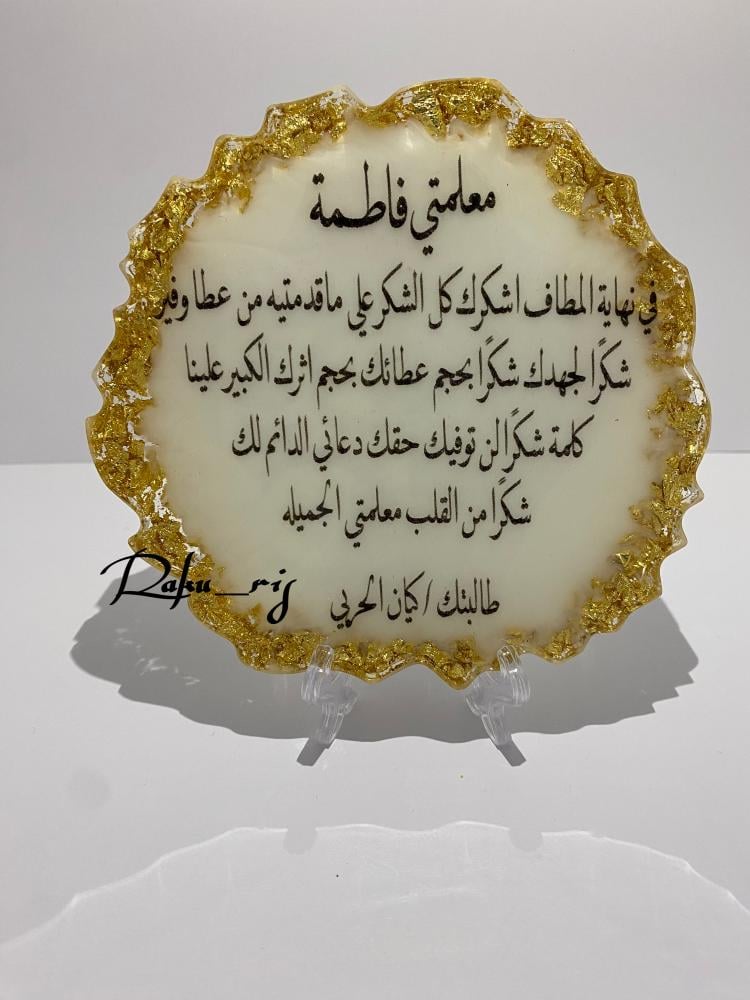 معلمتي فاطمة
في نهاية المطاف اشكرك كل الشكر علي ماقدمتيه من عطا وفير
شكرًا لجهدك شكرًا بحجم عطائك بحجم اثرك الكبير علينا
كلمة شكرًا لن توفيك حقك دعائي الدائم لك
شكرًا من القلب معلمتي الجميله
طالبتك / كيان الحربي
Raku_rij